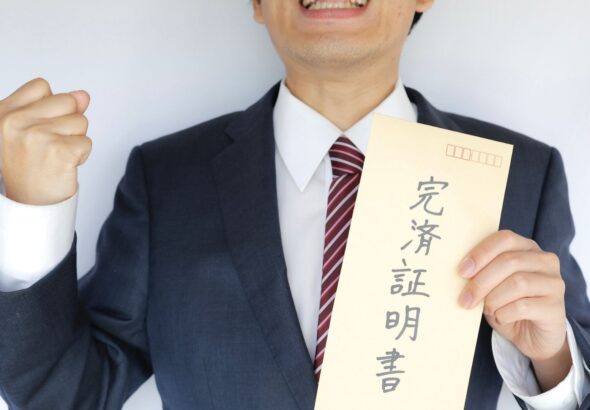 完済証明書